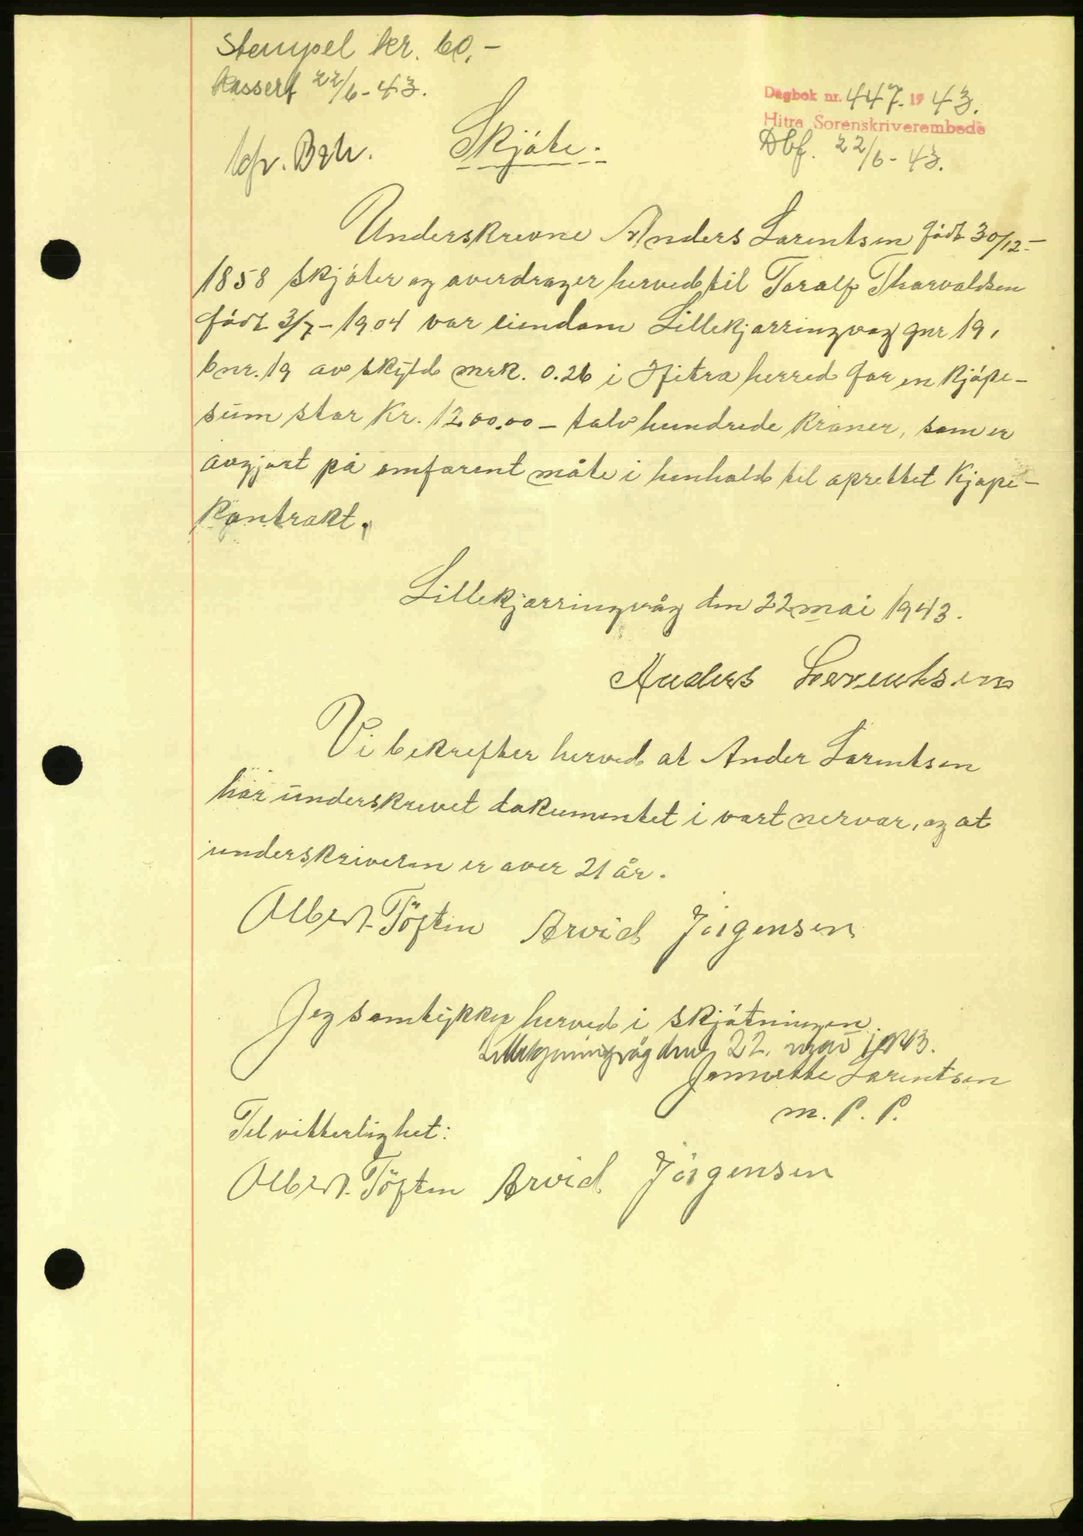 Stempel kr. 60,-
Kassert 22/6-43.
Dagbok nr. 447. 1943.
Hitra Sorenskriverembede
Dbf. 22/6-43.
Skjöte.
Underskrevne Anders Lorentsen född 30/12-
1858 skjöter og overdrager herved til Toralf Thorvaldsen
född 3/7-1904 vor eiendom Lillekjørringvåg gnr 19,
bnr. 19 av skyld mrk. 0.26 i Hitra herred for en kjöpe-
sum stor Kr. 1200.00 - tolv hundrede kroner, som er
avgjort på omforent måte i henhold til oprettet Kjöpe-
kontrakt.
Lillekjørringvåg den 22 mai 1943.
Anders Lorentsen
Vi bekrefter herved at Ander Lorentsen
har underskrevet dokumentet i vort nervær, og at
underskriveren er over 21 år.
Albert Töften Arvid Jörgensen
Jeg samtykker herved i skjötningen.
Lillekjerringvåg den 22. mai 1943.
Jannette Lorentsen
m. P. P.
Til vitterlighet:
Albert Töften Arvid Jörgensen